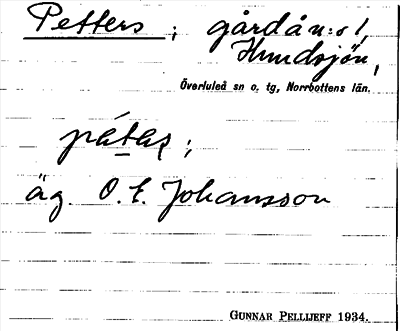 Petters ; gård å n:o 1,
Hundsjön,
Överluleå sn o. tg, Norrbottens län.
pétas ;
äg. O. E. Johansson
GUNNAR PELLIJEFF 1934.